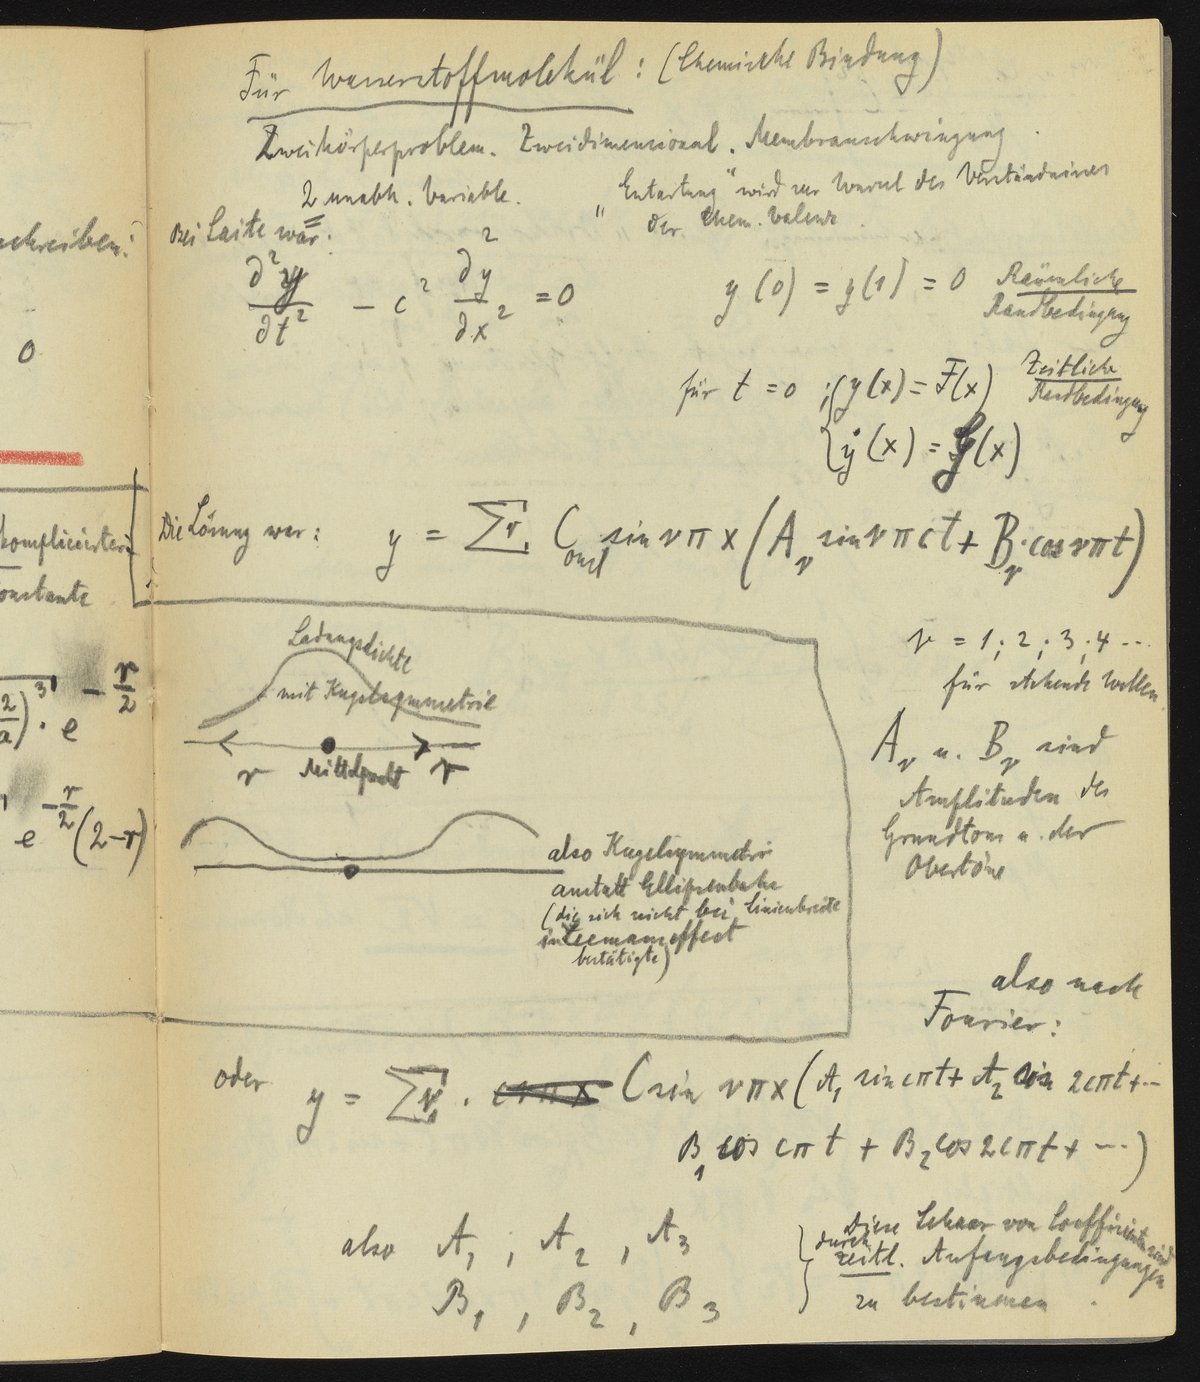 schreiben:
0
komplicierter
Konstante
2/a)³ · e^(-r/2)
e^(-r/2) (2-r)
Für Wasserstoffmolekül: (Chemische Bindung)
Zweikörperproblem. Zweidimensional. Membranschwingung
2 unabh. Variable.
„Entartung" wird zur Wurzel des Verständnisses
der chem. Valenz
Bei Saite war:
∂²y/∂t² - c² ∂²y/∂x² = 0
y(0) = y(1) = 0 Räumliche
Randbedingung
für t = 0 ; { y(x) = F(x) Zeitliche
Randbedingung
ẏ(x) = G(x)
Die Lösung war: y = Σν C sin νπx (A_ν sin νπct + B_ν · cos νπt)
und
ν = 1; 2; 3; 4 ...
für stehende Wellen
A_ν u. B_ν sind
Amplituden des
Grundtons u. der
Obertöne
Ladungsdichte
mit Kugelsymmetrie
r Mittelpunkt r
also Kugelsymmetrie
anstatt Ellipsenbahn
(die sich nicht bei Linienbreite
im Zeemaneffect
bestätigte)
also nach
Fourier:
oder y = Σν · C sin νπx (A₁ sin cπt + A₂ sin 2cπt + ...
B₁ cos cπt + B₂ cos 2cπt + ...)
also A₁, A₂, A₃
B₁, B₂, B₃
Diese Schaar von Coefficienten sind
durch
zeitl. Anfangsbedingungen
zu bestimmen.